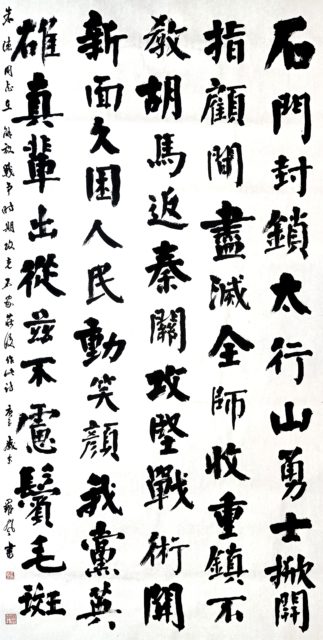 石門封鎖太行山勇士掀開
指顧間盡滅全師收重鎮不
教胡馬返秦關攻堅戰術開
新面久困人民動笑顏我黨英
雄真輩出從茲不慮鬢毛斑
朱德同志在解放戰爭時期攻克石家莊後作此詩 書